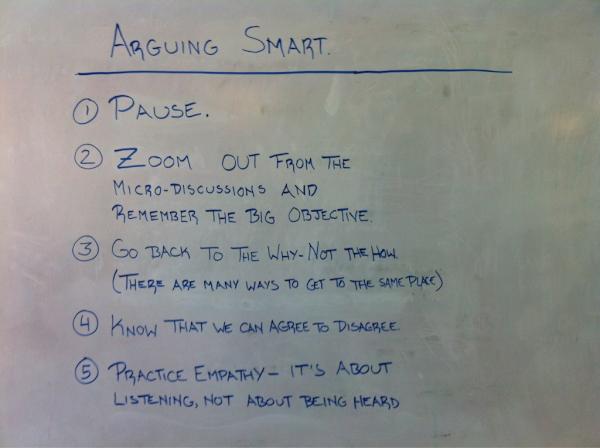 ARGUING SMART.
① PAUSE.
② ZOOM OUT FROM THE
MICRO-DISCUSSIONS AND
REMEMBER THE BIG OBJECTIVE.
③ GO BACK TO THE WHY-NOT THE HOW.
(THERE ARE MANY WAYS TO GET TO THE SAME PLACE)
④ KNOW THAT WE CAN AGREE TO DISAGREE.
⑤ PRACTICE EMPATHY - IT'S ABOUT
LISTENING, NOT ABOUT BEING HEARD